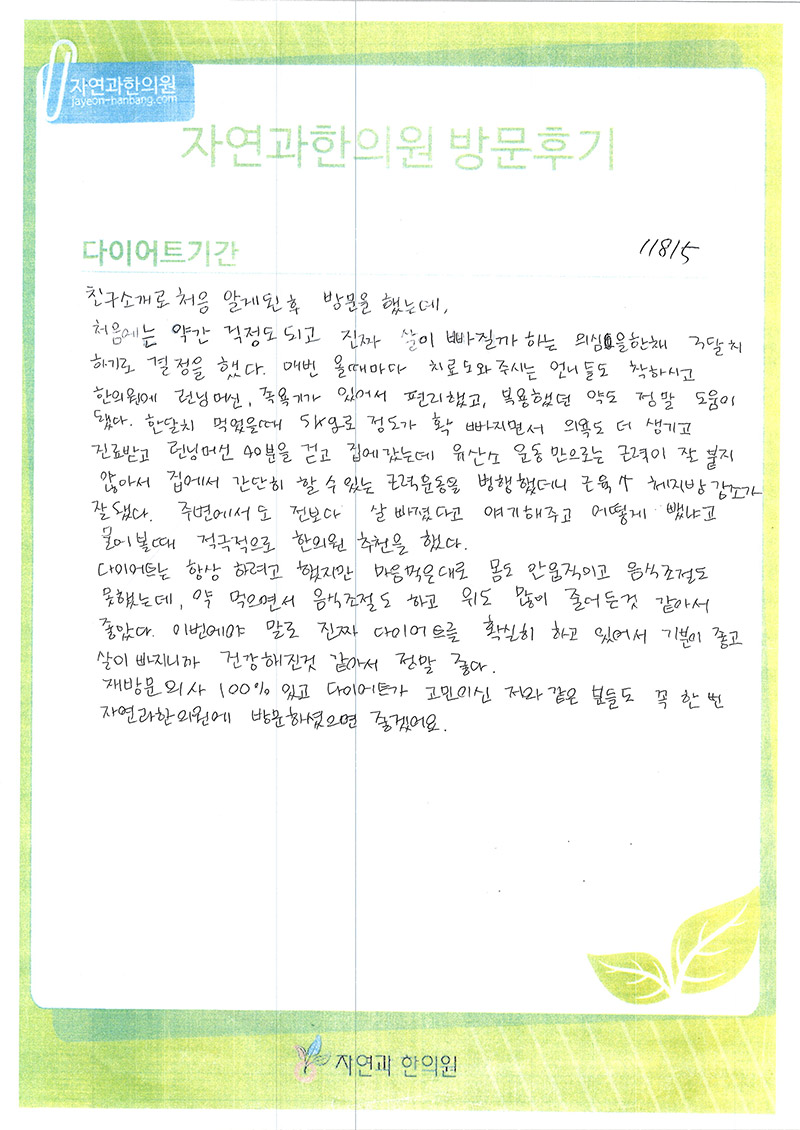 자연과한의원
jayeon-hanbang.com
자연과한의원 방문후기
다이어트기간
11815
친구소개로 처음 알게된후 방문을 했는데,
처음에는 약간 걱정도 되고 진짜 살이 빠질까 하는 의심을한채 3달치
하기로 결정을 했다. 매번 올때마다 치료도와주시는 언니들도 착하시고
한의원에 런닝머신, 족욕기가 있어서 편리했고, 복용했던 약도 정말 도움이
됐다. 한달치 먹었을때 5kg로 정도가 확 빠지면서 의욕도 더 생기고
진료받고 런닝머선 40분을 걷고 집에갔는데 유산소 운동만으로는 근력이 잘 붙지
않아서 집에서 간단히 할 수 있는 근력운동을 병행했더니 근육↑ 체지방 감소가
잘됐다. 주변에서도 전보다 살 빠졌다고 얘기해주고 어떻게 뺐냐고
물어볼때 적극적으로 한의원 추천을 했다.
다이어트는 항상 하려고 했지만 마음먹은대로 몸도 안움직이고 음식조절도
못했는데, 약 먹으면서 음식조절도 하고 위도 많이 줄어든것 같아서
좋았다. 이번에야 말로 진짜 다이어트를 확실히 하고 있어서 기분이 좋고
살이 빠지니까 건강해진것 같아서 정말 좋다.
재방문의사 100% 있고 다이어트가 고민이신 저와 같은 분들도 꼭 한 번
자연과한의원에 방문하셨으면 좋겠어요.
자연과 한의원